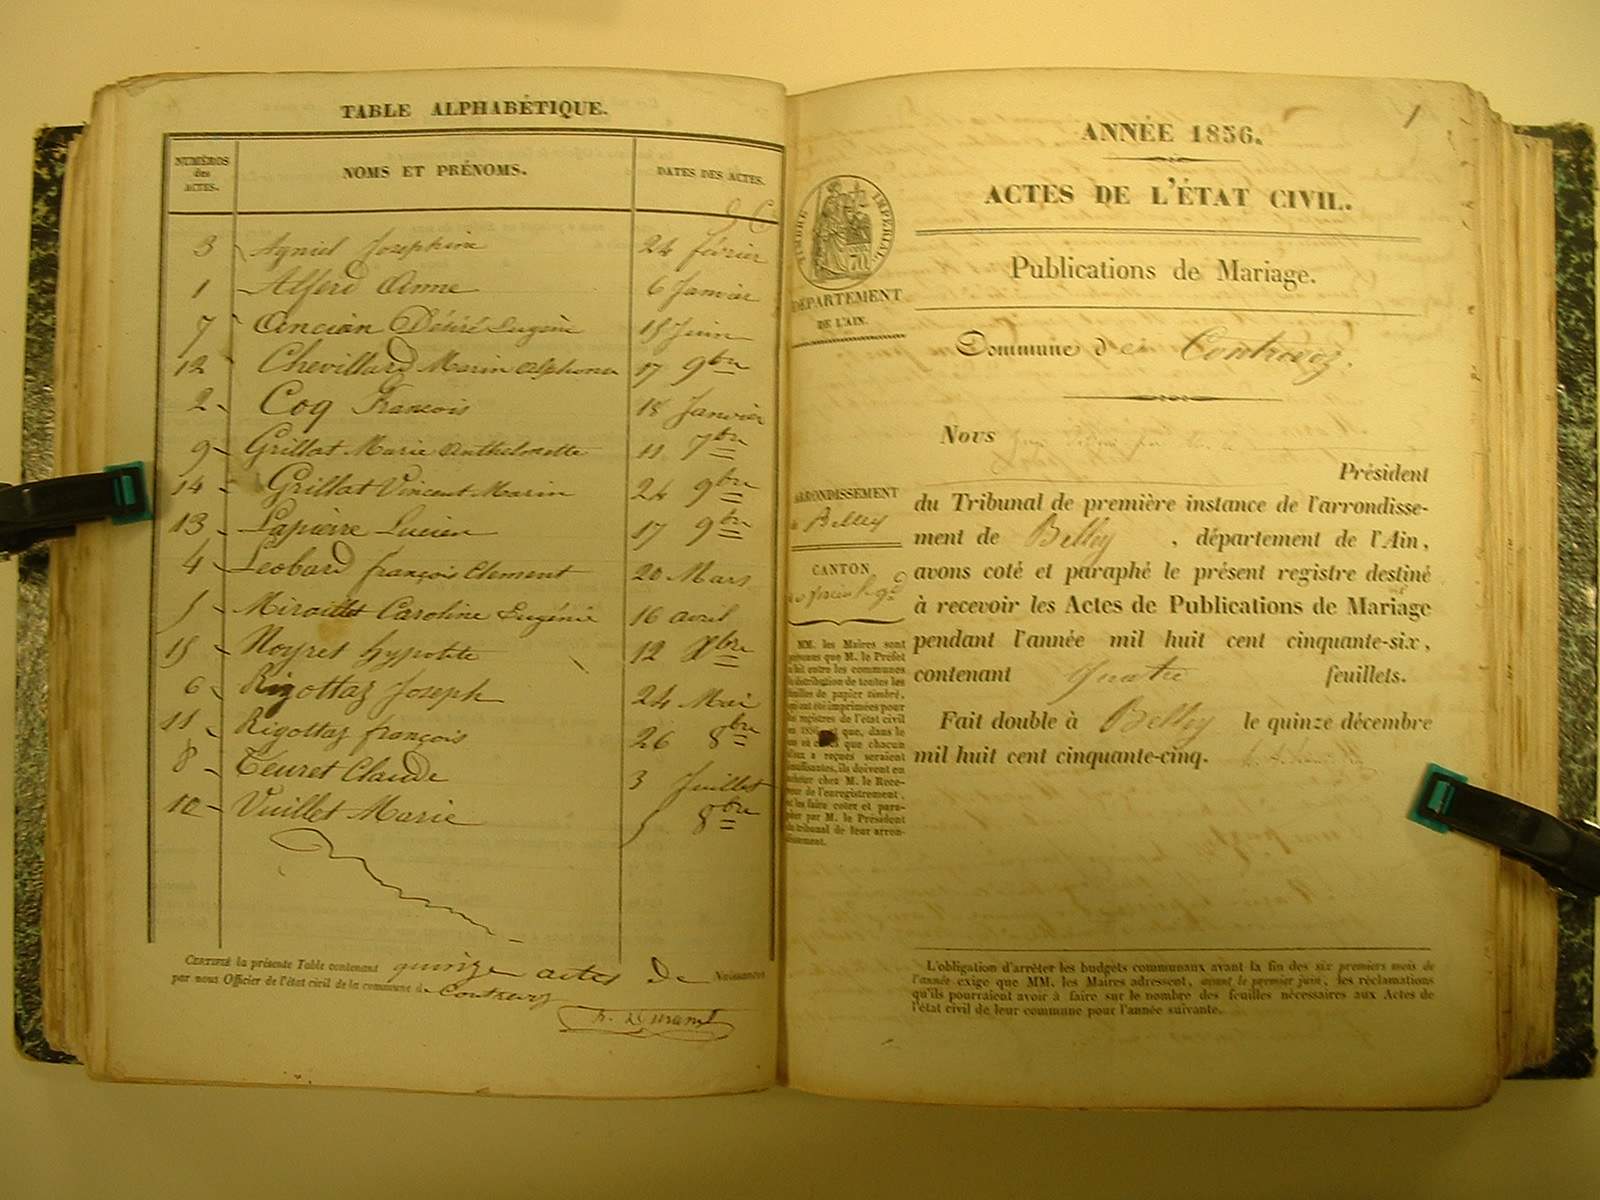 TABLE ALPHABÉTIQUE.
NUMÉROS des ACTES. NOMS ET PRÉNOMS. DATES DES ACTES.
3 Agniel Josephine 24 février
1 Alferd Anne 6 Janvier
7 Ancian Désiré Eugène 15 Juin
12 Chevillard Marin Alphonse 17 9bre
2 Coq François 18 Janvier
9 Grillat Marie Anthelmette 11 7bre
14 Grillat Vincent Marin 24 9bre
13 Lapierre Lucien 17 9bre
4 Leobard françois Clement 20 Mars
5 Miraillet Caroline Eugénie 16 avril
15 Noyret hyppolite 12 Xbre
6 Rigottaz Joseph 24 Mai
11 Rigottaz françois 26 8bre
8 Teuret Claude 3 Juillet
10 Vuillet Marie 5 8bre
CERTIFIÉ la présente Table contenant quinze actes de Naissances
par nous Officier de l'état civil de la commune d Contrevoz
1
ANNÉE 1856.
ACTES DE L'ÉTAT CIVIL.
Publications de Mariage.
Commune de Contrevoz.
TIMBRE IMPÉRIAL
70
DÉPARTEMENT
DE L'AIN.
ARRONDISSEMENT
de Belley
CANTON
MM. les Maires sont
prévenus que M. le Préfet
a fait entre les communes
la distribution de toutes les
feuilles de papier timbré,
qui ont été imprimées pour
les registres de l'état civil
en 1856 et que, dans le
cas où celles que chacun
d'eux a reçues seraient
insuffisantes, ils doivent en
acheter chez M. le Rece-
veur de l'enregistrement,
et les faire coter et para-
pher par M. le Président
du tribunal de leur arron-
dissement.
Nous
Président
du Tribunal de première instance de l'arrondisse-
ment de Belley , département de l'Ain,
avons coté et paraphé le présent registre destiné
à recevoir les Actes de Publications de Mariage
pendant l'année mil huit cent cinquante-six,
contenant quatre feuillets.
Fait double à Belley le quinze décembre
mil huit cent cinquante-cinq.
L'obligation d'arrêter les budgets communaux avant la fin des six premiers mois de
l'année exige que MM. les Maires adressent, avant le premier juin, les réclamations
qu'ils pourraient avoir à faire sur le nombre des feuilles nécessaires aux Actes de
l'état civil de leur commune pour l'année suivante.